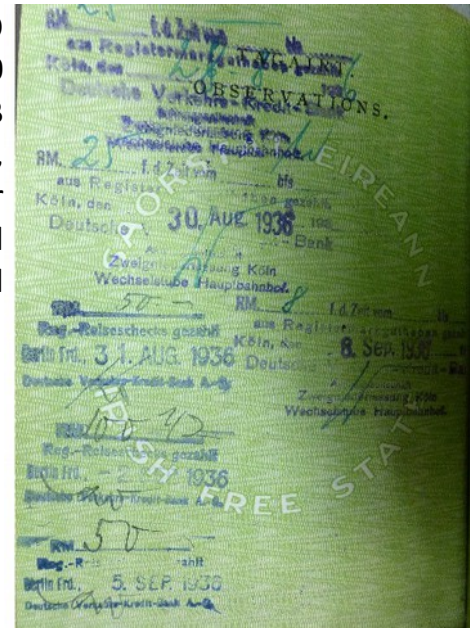 RM. f.d. Zeit vom bis
aus Registermarkguthaben gezahlt
Köln, den 28-8 1936
TUAIRI.
OBSERVATIONS.
Deutsche Verkehrs-Kredit-Bank
Zweigniederlassung Köln
Wechselstube Hauptbahnhof.
RM. 25 f.d. Zeit vom bis
aus Register gezahlt
Köln, den 30. AUG. 1936 193
Deutsche - Bank
Zweigniederlassung Köln
Wechselstube Hauptbahnhof.
SAORSTÁT EIREANN
RM 50 -
Reg.-Reiseschecks gezahlt
Berlin Frd., 31. AUG. 1936
Deutsche Verkehrs-Kredit-Bank A.-G.
RM. 8 f.d. Zeit vom bis
aus Registermarkguthaben gezahlt
Köln, den 8. Sep. 1936
Deutsche -Kredit-Ba
Zweigniederlassung Köln
Wechselstube Hauptbahnhof.
100
Reg.-Reiseschecks gezahlt
Berlin Frd., - 2. 1936
Deutsche Verkehrs-Kredit-Bank A.-G.
IRISH FREE STAT
RM 50
Reg.-R ahlt
Berlin Frd., 5. SEP. 1936
Deutsche Verkehrs-Kredit-Bank A.-G.